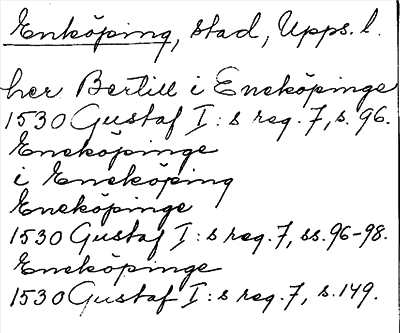 Enköping, stad, Upps. l.
her Bertill i Eneköpinge
1530 Gustaf I:s reg. 7, s. 96.
Eneköpinge
i Eneköping
Eneköpinge
1530 Gustaf I:s reg. 7, ss. 96-98.
Eneköpinge
1530 Gustaf I:s reg. 7, s. 149.